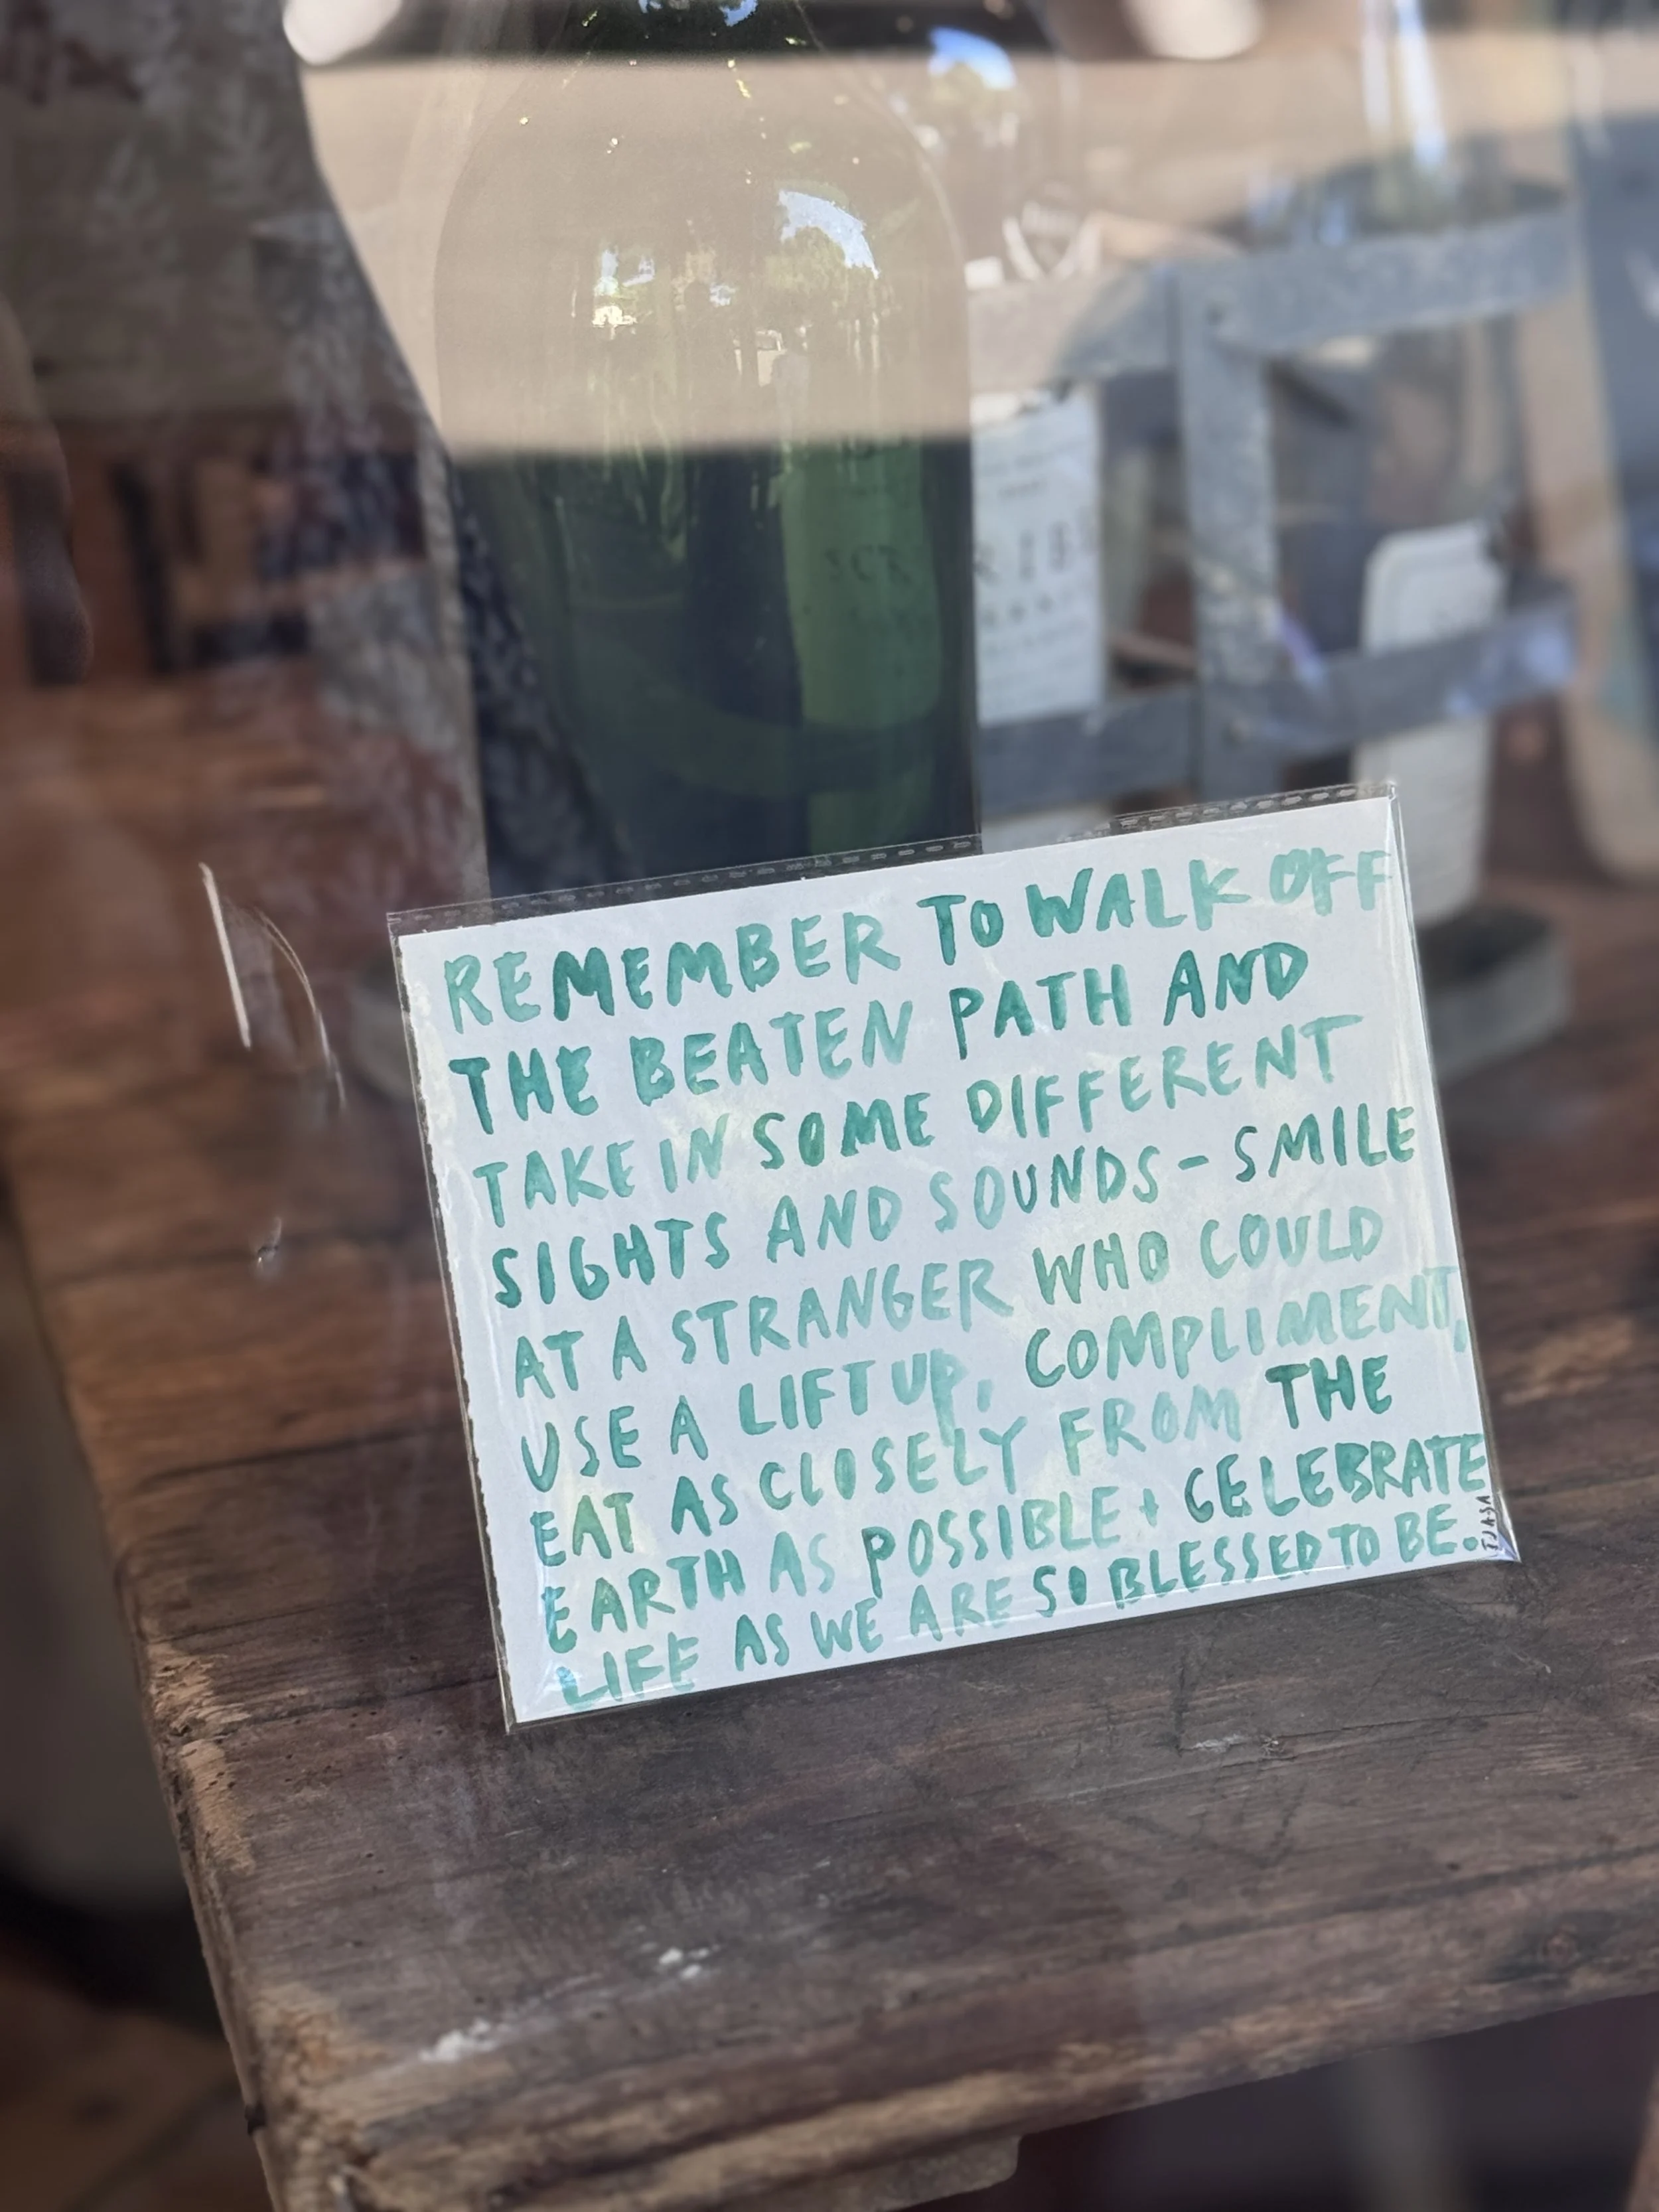 REMEMBER TO WALK OFF
THE BEATEN PATH AND
TAKE IN SOME DIFFERENT
SIGHTS AND SOUNDS - SMILE
AT A STRANGER WHO COULD
USE A LIFT UP, COMPLIMENT,
EAT AS CLOSELY FROM THE
EARTH AS POSSIBLE + CELEBRATE
LIFE AS WE ARE SO BLESSED TO BE.